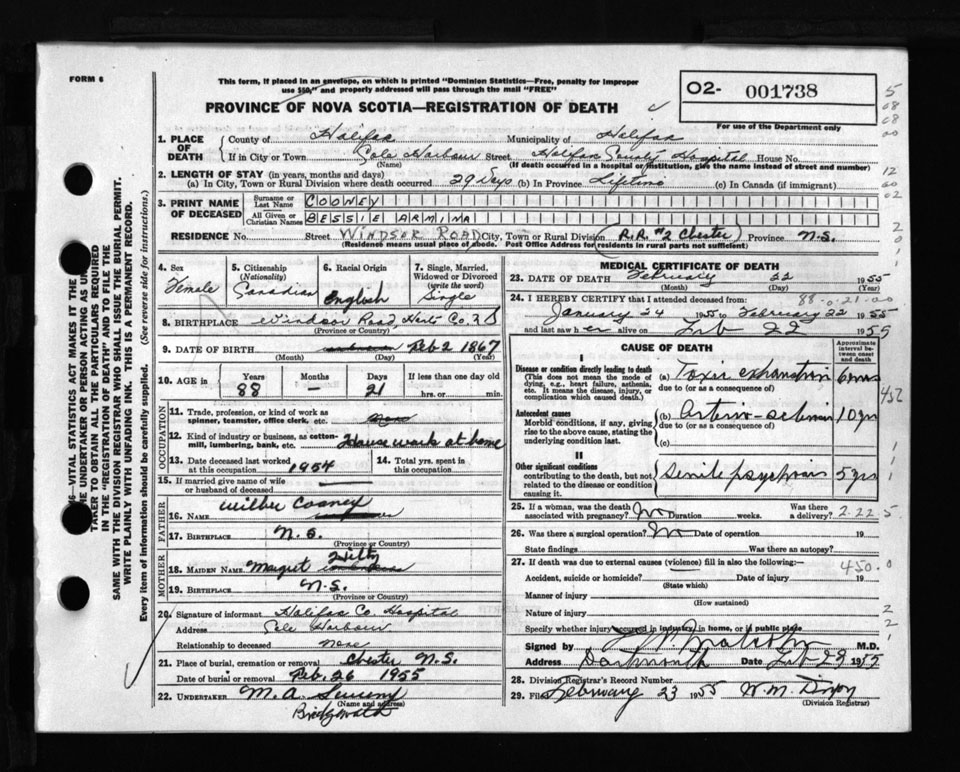 FORM 6
This form, if placed in an envelope, on which is printed "Dominion Statistics—Free, penalty for improper
use $50," and properly addressed will pass through the mail "FREE"
PROVINCE OF NOVA SCOTIA—REGISTRATION OF DEATH
O2- 001738
For use of the Department only
66—VITAL STATISTICS ACT MAKES IT THE
THE UNDERTAKER OR PERSON ACTING AS UN
TAKER TO OBTAIN ALL THE PARTICULARS REQUIRED
IN THE "REGISTRATION OF DEATH" AND TO FILE THE
SAME WITH THE DIVISION REGISTRAR WHO SHALL ISSUE THE BURIAL PERMIT.
WRITE PLAINLY WITH UNFADING INK. THIS IS A PERMANENT RECORD.
Every item of information should be carefully supplied. (See reverse side for instructions.)
1. PLACE OF DEATH County of Halifax Municipality of Halifax
If in City or Town Cole Harbour Street Halifax County Hospital House No.
(Name) (If death occurred in a hospital or institution, give the name instead of street and number)
2. LENGTH OF STAY (in years, months and days)
(a) In City, Town or Rural Division where death occurred 29 Days (b) In Province Lifetime (c) In Canada (if immigrant)
3. PRINT NAME OF DECEASED Surname or Last Name COONEY
All Given or Christian Names BESSIE ARMINA
RESIDENCE No. Street WINDSOR ROAD City, Town or Rural Division R.R. #2 Chester Province N.S.
(Residence means usual place of abode. Post Office Address for residents in rural parts not sufficient)
4. Sex Female
5. Citizenship (Nationality) Canadian
6. Racial Origin English
7. Single, Married, Widowed or Divorced (write the word) Single
8. BIRTHPLACE Windsor Road, Co.
(Province or Country)
9. DATE OF BIRTH Feb 2 1867
(Month) (Day) (Year)
10. AGE in Years 88 Months — Days 21 If less than one day old
hrs. or min.
OCCUPATION
11. Trade, profession, or kind of work as spinner, teamster, office clerk, etc.
12. Kind of industry or business, as cotton-mill, lumbering, bank, etc. House work at home
13. Date deceased last worked at this occupation 1954
14. Total yrs. spent in this occupation
15. If married give name of wife or husband of deceased
FATHER
16. Name Wilber Cooney
17. Birthplace N.S.
(Province or Country)
MOTHER
18. Maiden Name Margret Hilty
19. Birthplace N.S.
(Province or Country)
20. Signature of informant Halifax Co. Hospital
Address Cole Harbour
Relationship to deceased none
21. Place of burial, cremation or removal Chester N.S.
Date of burial or removal Feb. 26 1955
22. UNDERTAKER M. A.
(Name and address)
MEDICAL CERTIFICATE OF DEATH
23. DATE OF DEATH February 22 1955
(Month) (Day) (Year)
24. I HEREBY CERTIFY that I attended deceased from 88-0-21-00
January 24 1955 to February 22 1955
and last saw her alive on Feb 22 1955
CAUSE OF DEATH
Approximate interval between onset and death
I
Disease or condition directly leading to death
(This does not mean the mode of dying, e.g., heart failure, asthenia, etc. It means the disease, injury, or complication which caused death.)
(a) Toxic exhaustion 6 mos
due to (or as a consequence of)
Antecedent causes
Morbid conditions, if any, giving rise to the above cause, stating the underlying condition last.
(b) 10 yrs
due to (or as a consequence of)
(c)
II
Other significant conditions
contributing to the death, but not related to the disease or condition causing it.
Senile psychosis 5 yrs
25. If a woman, was the death associated with pregnancy? No Duration weeks. Was there a delivery? 2-22-5
26. Was there a surgical operation? No Date of operation 19
State findings Was there an autopsy?
27. If death was due to external causes (violence) fill in also the following:— 450.0
Accident, suicide or homicide? Date of injury 19
(State which)
Manner of injury
(How sustained)
Nature of injury
Specify whether injury occurred in industry, in home, or in public place
Signed by M.D.
Address Dartmouth Date Feb 23 1955
28. Division Registrar's Record Number
29. Filed February 23 1955 W. M. Dixon
(Division Registrar)